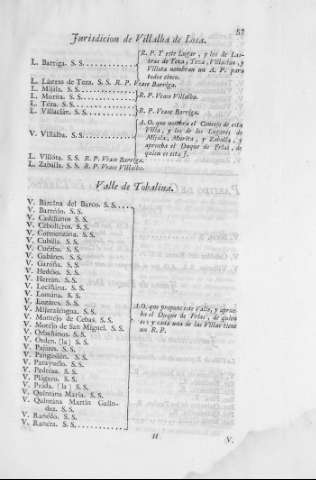 57
Jurisdicion de Villalba de Losa.
L. Barriga. S. S.
R. P. Y este Lugar, y los de Lastras de Teza, Teza, Villacian, y Villota nombran un A. P. para todos cinco.
L. Lastras de Teza. S. S. R. P. Vease Barriga.
L. Mijala. S. S.
L. Murita. S. S.
R. P. Vease Villalba.
L. Teza. S. S.
L. Villacián. S. S.
R. P. Vease Barriga.
V. Villalba. S. S.
A. O. que nombra el Concejo de esta Villa, y los de los Lugares de Mijala, Murita, y Zaballa, y aprueba el Duque de Frias, de quien es esta J.
L. Villota. S. S. R. P. Vease Barriga.
L. Zaballa. S. S. R. P. Vease Villalba.
Valle de Tobalina.
V. Barcina del Barco. S. S.
V. Barredo. S. S.
V. S. S.
V. Cebolleros. S. S.
V. S. S.
V. Cubilla. S. S.
V. S. S.
V. Gabanes. S. S.
V. Garoña. S. S.
V. Hedeso. S. S.
V. Herran. S. S.
V. Leciñana. S. S.
V. Lomana. S. S.
V. Lozares. S. S.
V. Mijaralengua. S. S.
V. Montejo de Cebas. S. S.
V. Montejo de San Miguel. S. S.
V. Orbañanos. S. S.
V. Orden. [la] S. S.
V. Pajares. S. S.
V. Pangusion. S. S.
V. Parayuelo. S. S.
V. Pedrosa. S. S.
V. Plágaro. S. S.
V. Prada. [la] S. S.
V. Quintana Maria. S. S.
V. Quintana Martin Galindez. S. S.
V. Ranedo. S. S.
V. Ranera. S. S.
A. O. que propone este Valle, y aprueba el Duque de Frias, de quien es: y cada una de las Villas tiene un R. P.
H
V.